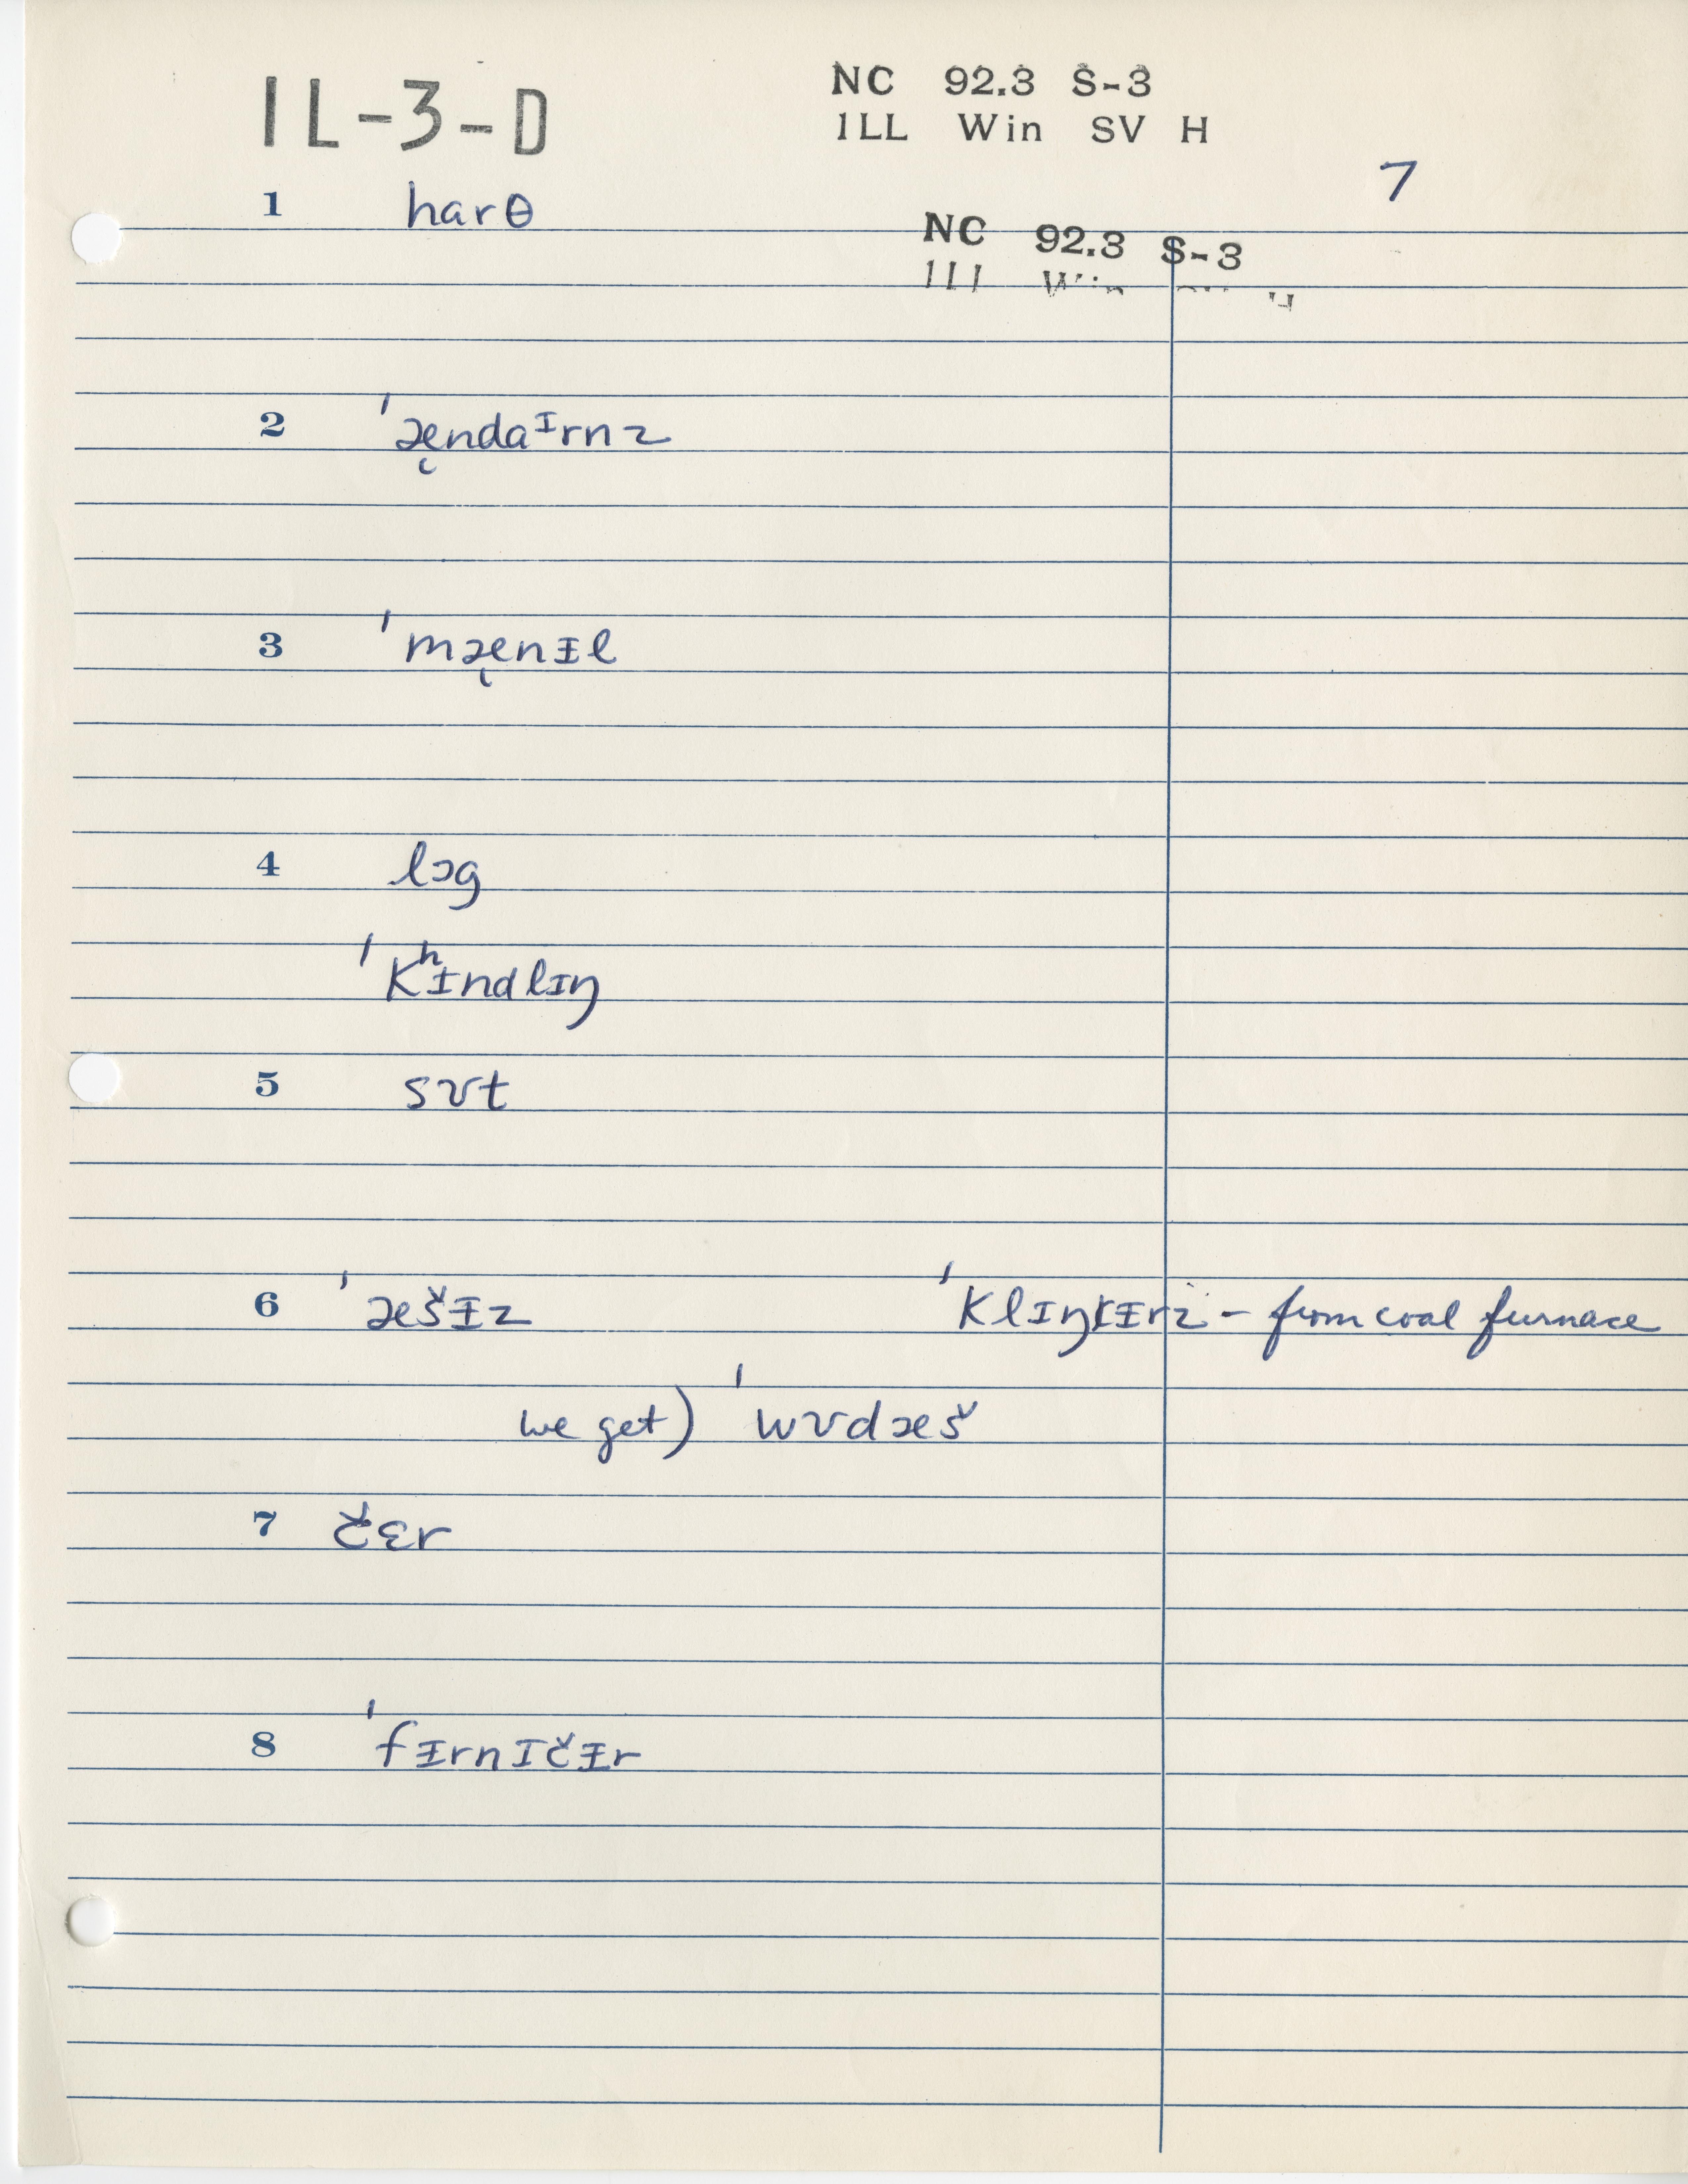 IL-3-D
NC 92.3 S-3
ILL Win SV H
7
1 harθ
NC 92.3 S-3
Ill Win
2 ˈæ̨ndaᶦrnz
3 ˈmæ̨nᵻl
4 lɔg
ˈkʰᵻndlɪŋ
5 sʊt
6 ˈæšᵻz ˈklɪŋkᵻrz – from coal furnace
we get) ˈwʊdæš
7 čɛr
8 ˈfᵻrnɪčᵻr